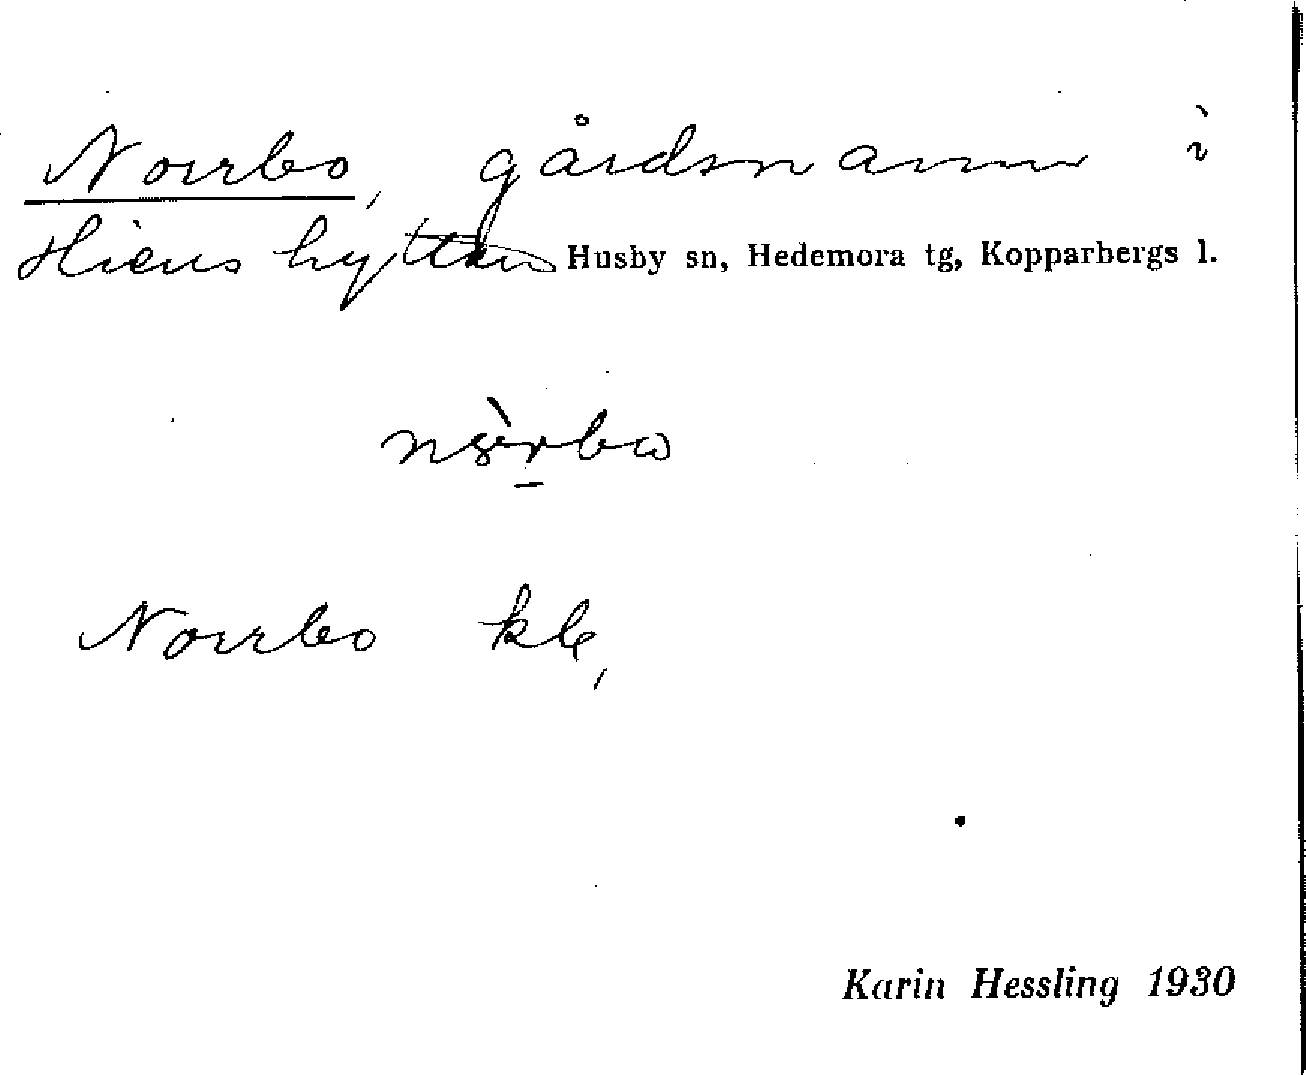 Norrbo, gårdsnamn i
Stjärnshyttan Husby sn, Hedemora tg, Kopparbergs l.
Norrbo kb,
Karin Hessling 1930